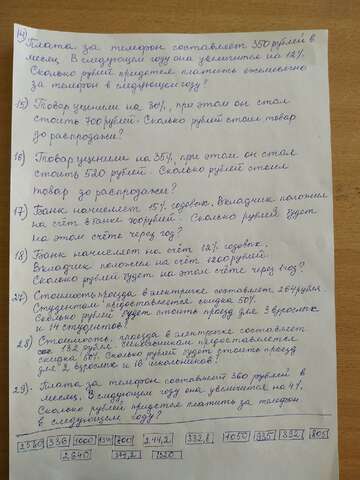 14) Плата за телефон составляет 350 рублей в
месяц. В следующем году она увеличится на 12%.
Сколько рублей придется платить ежемесячно
за телефон в следующем году?
15) Товар уценили на 30%, при этом он стал
стоить 700 рублей. Сколько рублей стоил товар
до распродажи?
16) Товар уценили на 35%, при этом он стал
стоить 520 рублей. Сколько рублей стоил
товар до распродажи?
17) Банк начисляет 15% годовых. Вкладчик положил
на счёт в банке 700 рублей. Сколько рублей будет
на этом счёте через год?
18) Банк начисляет на счёт 12% годовых.
Вкладчик положил на счёт 1200 рублей.
Сколько рублей будет на этом счёте через 1 год?
27) Стоимость проезда в электричке составляет 264 рубля
Студентам предоставляется скидка 50%.
Сколько рублей будет стоить проезд для 3 взрослых
и 14 студентов?
28) Стоимость проезда в электричке составляет
132 рубля. Школьникам предоставляется
скидка 50%. Сколько рублей будет стоить проезд
для 2 взрослых и 18 школьников?
29) Плата за телефон составляет 360 рублей в
месяц. В следующем году она увеличится на 4%.
Сколько рублей придется платить за телефон
в следующем году?
336 1000 700 1050 935 392 805
2640 374,2 1320